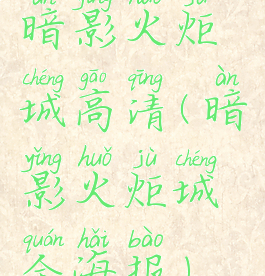 àn yǐng huǒ jù
暗影火炬
chéng gāo qīng àn
城高清(暗
yǐng huǒ jù chéng
影火炬城
quán hǎi bào
全海报)